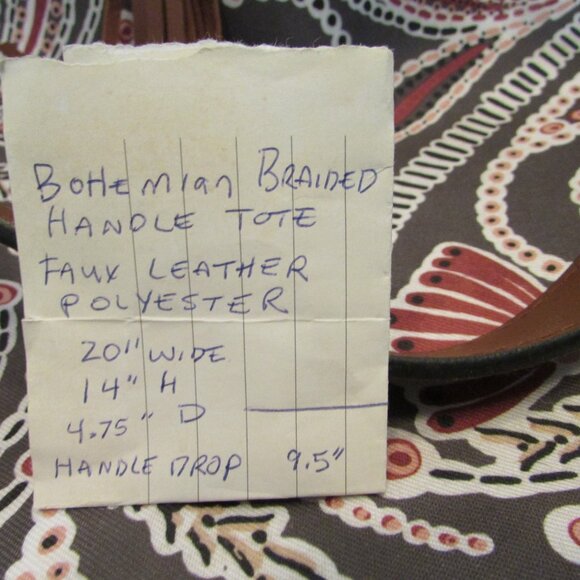 BOHEMIAN BRAIDED
HANDLE TOTE
FAUX LEATHER
POLYESTER
20" WIDE
14" H
4.75" D
HANDLE DROP 9.5"